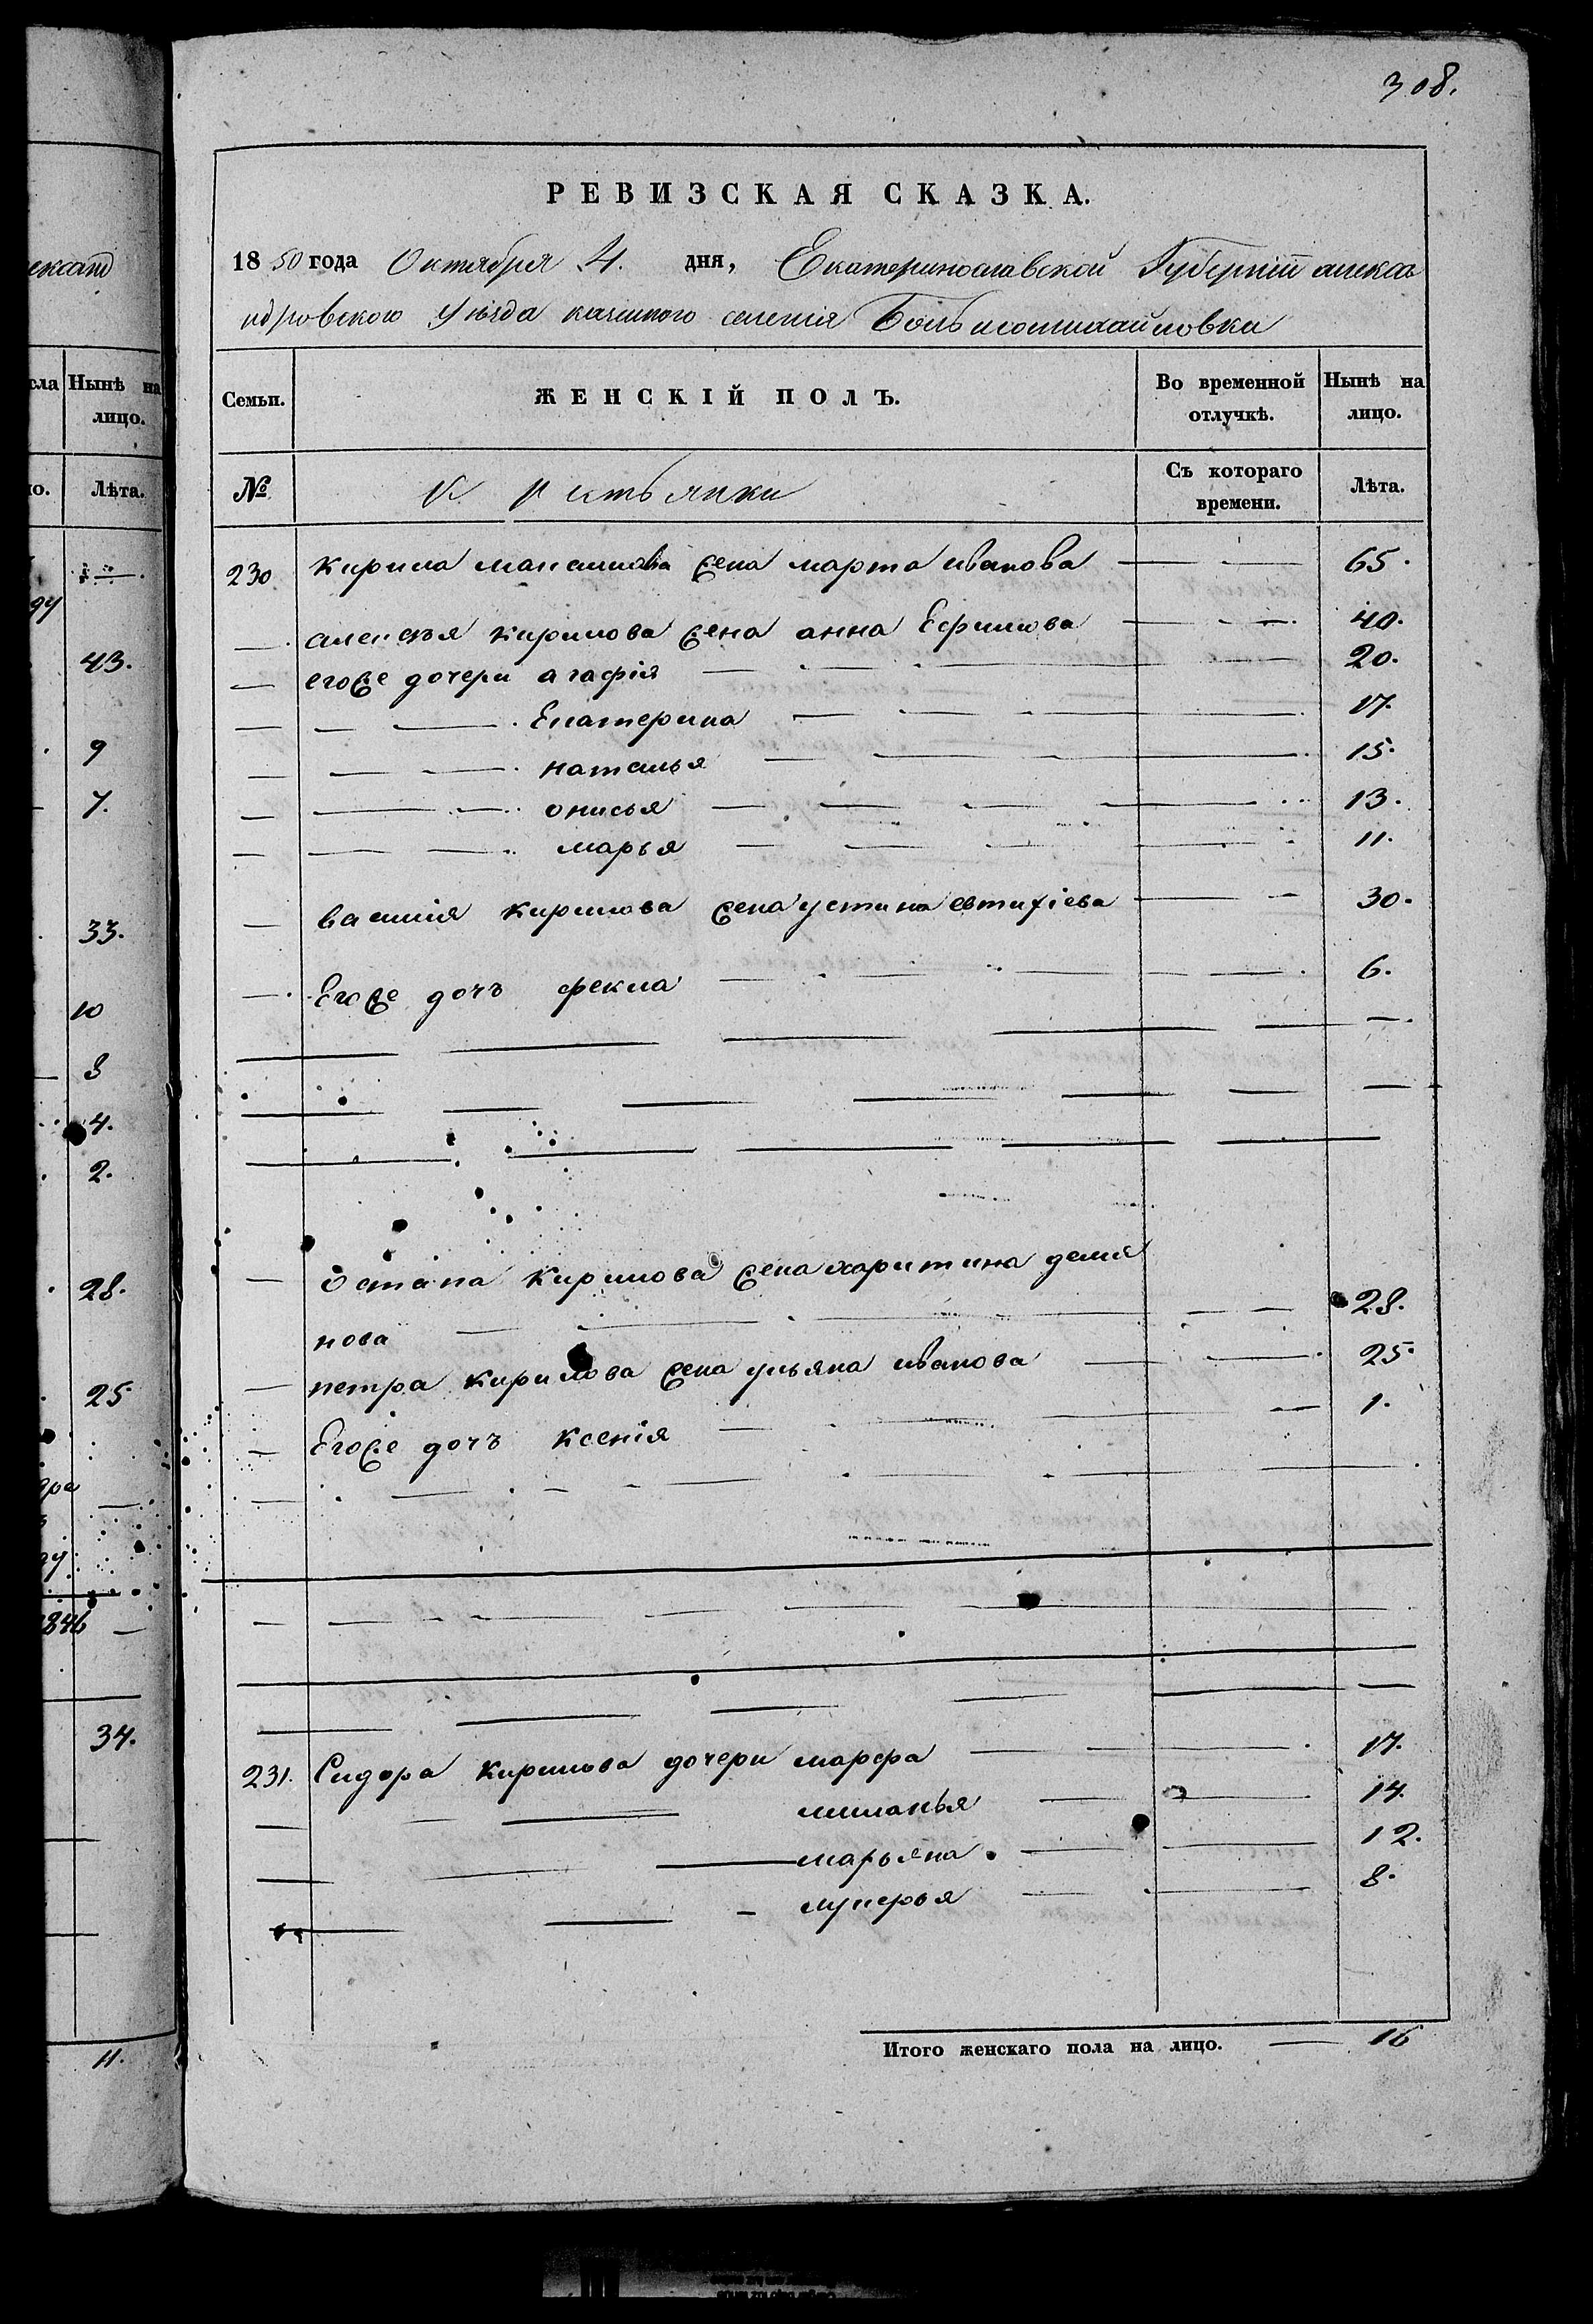 308.
РЕВИЗСКАЯ СКАЗКА.
1850 года Октября 4. дня, Екатеринославской Губерніи алекса
ндровского Уѣзда казенного селенія Большомихайловки
Семьи. ЖЕНСКІЙ ПОЛЪ. Во временной отлучкѣ. Нынѣ на лицо.
№ Крестьянки Съ котораго времени. Лѣта.
230 кирила максимова жена марта иванова 65.
алексѣя кирилова жена анна Ефимова 40.
егоже дочери агафія 20.
Екатерина 17.
наталья 15.
онисья 13.
марья 11.
василія кирилова жена устина евтихіева 30.
Егоже дочъ фекла 6.
остапа кирилова жена харитина демя
нова 28.
петра кирилова жена ульяна иванова 25.
Егоже дочъ ксенія 1.
231. Сидора кирилова дочери марфа 17.
миланья 14.
марьяна 12.
лукерья 8.
Итого женскаго пола на лицо. 16
ександ
сла Нынѣ на лицо.
Лѣта.
43.
9
7.
33.
10
8
4.
2.
28.
25
1846
34.
11.